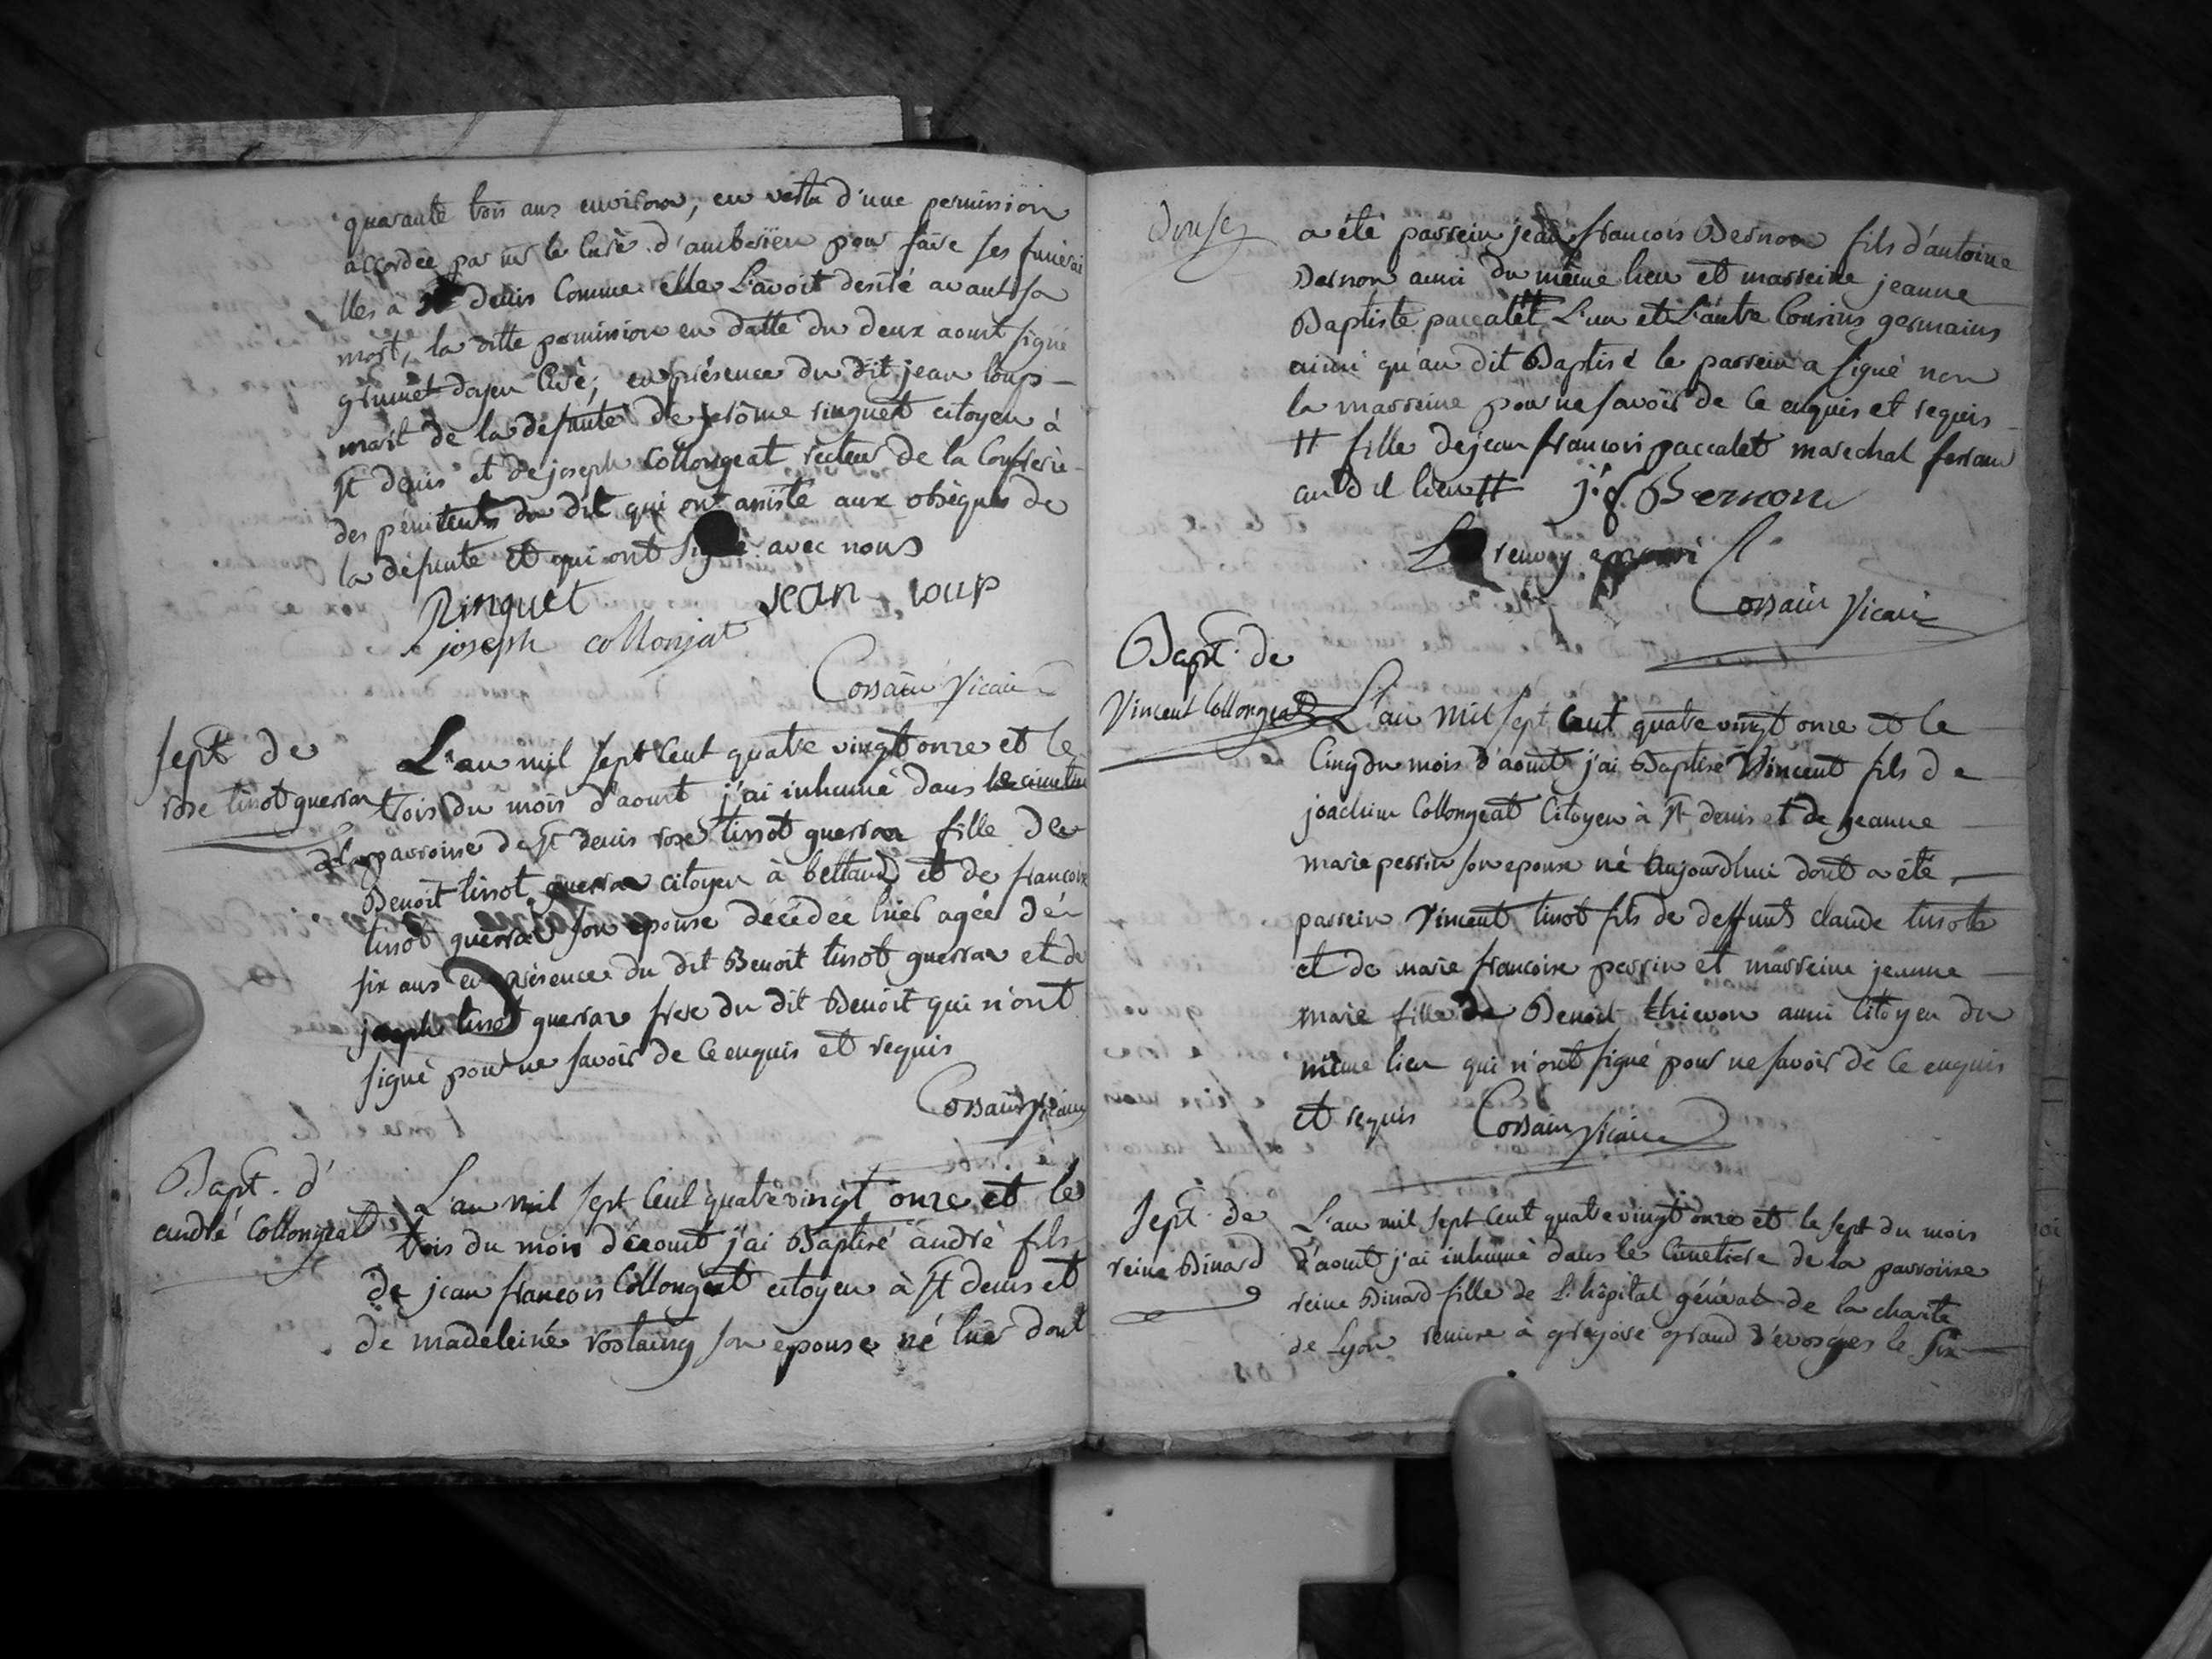 quarante trois ans environ, en vertu d'une permission
accordée par mr le Curé d'amberieu pour faire ses funerai
lles à St denis Comme elle L'avoit desiré avant sa
mort, la ditte permission en datte du deux aoust signé
grumet doyen Curé; en présence du dit jean loup
mari de la defunte de jerôme ringuet citoyen à
St denis et de joseph Collongeat recteur de la Confrerie
des pénitents du dit qui ont assisté aux obsèques de
la defunte et qui ont signé avec nous
Ringuet jean loup
joseph collonjat
Cossain Vicaire
Sept de
rose tissot guerraz
L'an mil sept Cent quatre vingt onze et le
trois du mois d'aoust j'ai inhumé dans le cimetie
de la parroisse de St denis rose tissot guerraz fille de
Benoit tissot guerraz citoyen à bettand et de francoise
tissot guerraz son epouse décédée hier agée de
six ans en présence du dit Benoit tissot guerraz et de
joseph tissot guerraz frere du dit Benoit qui n'ont
signé pour ne savoir de Ce enquis et requis
Cossain Vicaire
Bapt. d'
andré Collongeat
L'an mil sept Cent quatre vingt onze et le
trois du mois d'aoust j'ai Baptisé andré fils
de jean francois Collongeat citoyen à St denis et
de madeleine rostaing son epouse né hier dont
douse
a été parrein jean francois Bernon fils d'antoine
Bernon aussi du même lieu et marreine jeanne
Baptiste paccalet L'un et L'autre Cousins germains
ainsi qu'au dit Baptisé le parrein a signé non
la marreine pour ne savoir de Ce enquis et requis
# fille de jean francois paccalet marechal ferrant
au dit lieu # j. f. Bernon
Le renvoy approuvé
Cossain Vicaire
Bapt. de
Vincent Collongeat
L'an mil sept Cent quatre vingt onze et le
Cinq du mois d'aoust j'ai Baptisé Vincent fils de
joachim Collongeat Citoyen à St denis et de jeanne
marie perrin son epouse né aujourdhui dont a été
parrein Vincent tissot fils de deffunt claude tissot
et de marie francoise perrin et marreine jeanne
marie fille de Benoit thievon aussi Citoyen du
même lieu qui n'ont signé pour ne savoir de Ce enquis
et requis Cossain Vicaire
Sept. de
reine Binard
L'an mil sept Cent quatre vingt onze et le sept du mois
d'aoust j'ai inhumé dans le Cimetiere de la parroisse
reine Binard fille de L'hôpital général de la charité
de Lyon remise à gregoire grand d'evosges le six